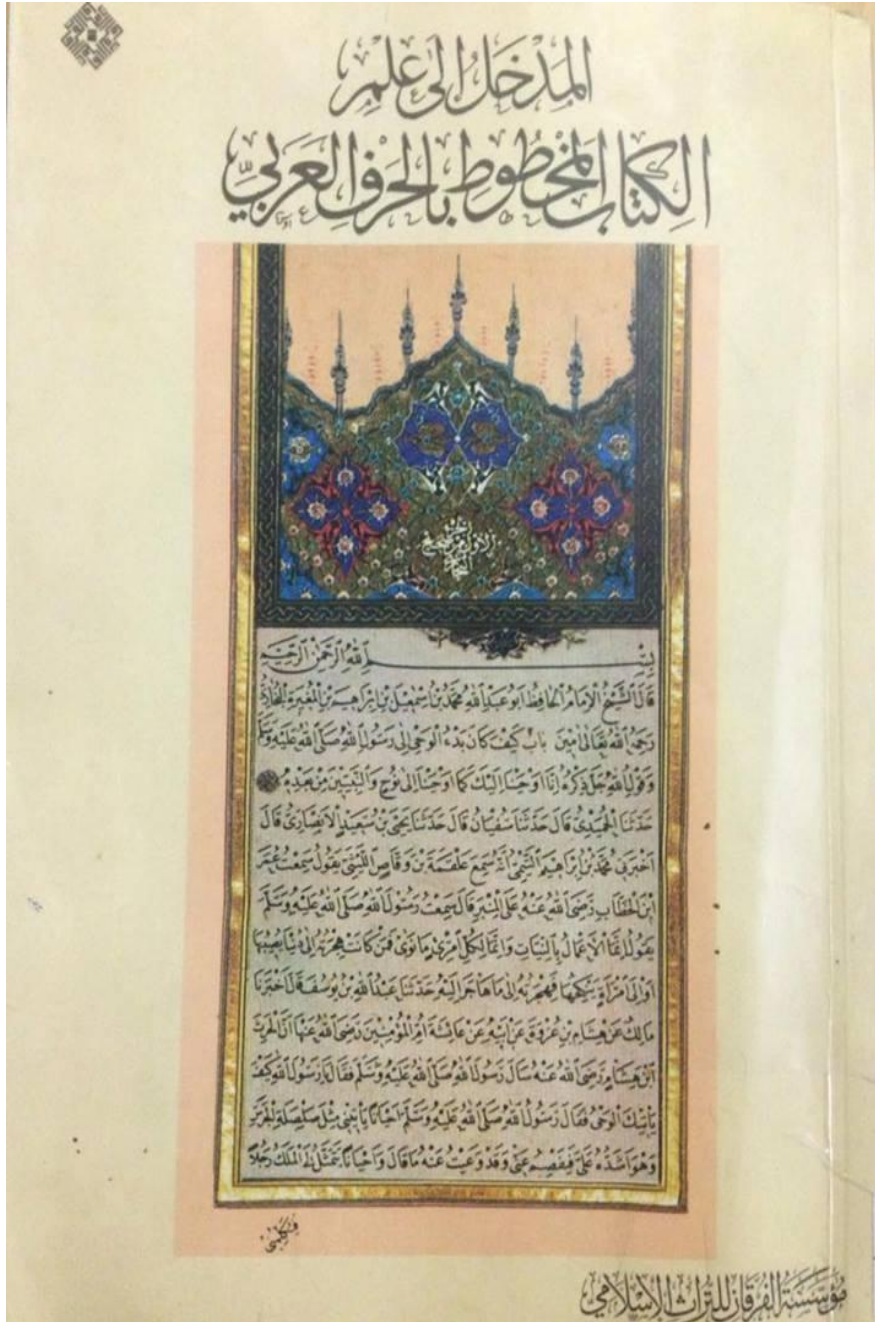 المَدْخَلُ إلى عِلْمِ
الكِتَابِ المَخْطُوطِ بالحَرْفِ العَرَبِيِّ
الجزء
الاول من صحيح
البخاري
بِسْمِ اللهِ الرَّحْمٰنِ الرَّحِيْمِ
قَالَ الشَّيْخُ الْاِمَامُ الْحَافِظُ اَبُو عَبْدِ اللهِ مُحَمَّدُ بْنُ اِسْمٰعِيْلَ بْنِ اِبْرَاهِيْمَ بْنِ الْمُغِيْرَةِ الْبُخَارِيُّ
رَحِمَهُ اللهُ تَعَالٰى اٰمِيْنَ بَابُ كَيْفَ كَانَ بَدْءُ الْوَحْىِ اِلٰى رَسُوْلِ اللهِ صَلَّى اللهُ عَلَيْهِ وَسَلَّمَ
وَقَوْلِ اللهِ جَلَّ ذِكْرُهُ اِنَّا اَوْحَيْنَا اِلَيْكَ كَمَا اَوْحَيْنَا اِلٰى نُوْحٍ وَالنَّبِيِّيْنَ مِنْ بَعْدِهِ
حَدَّثَنَا الْحُمَيْدِىُّ قَالَ حَدَّثَنَا سُفْيَانُ قَالَ حَدَّثَنَا يَحْيَى بْنُ سَعِيْدٍ الْاَنْصَارِىُّ قَالَ
اَخْبَرَنِى مُحَمَّدُ بْنُ اِبْرَاهِيْمَ التَّيْمِىُّ اَنَّهُ سَمِعَ عَلْقَمَةَ بْنَ وَقَّاصٍ اللَّيْثِىَّ يَقُوْلُ سَمِعْتُ عُمَرَ
ابْنَ الْخَطَّابِ رَضِىَ اللهُ عَنْهُ عَلَى الْمِنْبَرِ قَالَ سَمِعْتُ رَسُوْلَ اللهِ صَلَّى اللهُ عَلَيْهِ وَسَلَّمَ
يَقُوْلُ اِنَّمَا الْاَعْمَالُ بِالنِّيَّاتِ وَاِنَّمَا لِكُلِّ امْرِئٍ مَا نَوٰى فَمَنْ كَانَتْ هِجْرَتُهُ اِلٰى دُنْيَا يُصِيْبُهَا
اَوْ اِلَى امْرَاَةٍ يَنْكِحُهَا فَهِجْرَتُهُ اِلٰى مَا هَاجَرَ اِلَيْهِ حَدَّثَنَا عَبْدُ اللهِ بْنُ يُوْسُفَ قَالَ اَخْبَرَنَا
مَالِكٌ عَنْ هِشَامِ بْنِ عُرْوَةَ عَنْ اَبِيْهِ عَنْ عَائِشَةَ اُمِّ الْمُؤْمِنِيْنَ رَضِىَ اللهُ عَنْهَا اَنَّ الْحٰرِثَ
ابْنَ هِشَامٍ رَضِىَ اللهُ عَنْهُ سَاَلَ رَسُوْلَ اللهِ صَلَّى اللهُ عَلَيْهِ وَسَلَّمَ فَقَالَ يَا رَسُوْلَ اللهِ كَيْفَ
يَأْتِيْكَ الْوَحْىُ فَقَالَ رَسُوْلُ اللهِ صَلَّى اللهُ عَلَيْهِ وَسَلَّمَ اَحْيَانًا يَأْتِيْنِى مِثْلَ صَلْصَلَةِ الْجَرَسِ
وَهُوَ اَشَدُّهُ عَلَىَّ فَيَفْصِمُ عَنِّى وَقَدْ وَعَيْتُ عَنْهُ مَا قَالَ وَاَحْيَانًا يَتَمَثَّلُ لِىَ الْمَلَكُ رَجُلًا
فيكلمنى
مُؤَسَّسَةُ الفُرْقَانِ للتُّرَاثِ الإِسْلَامِي